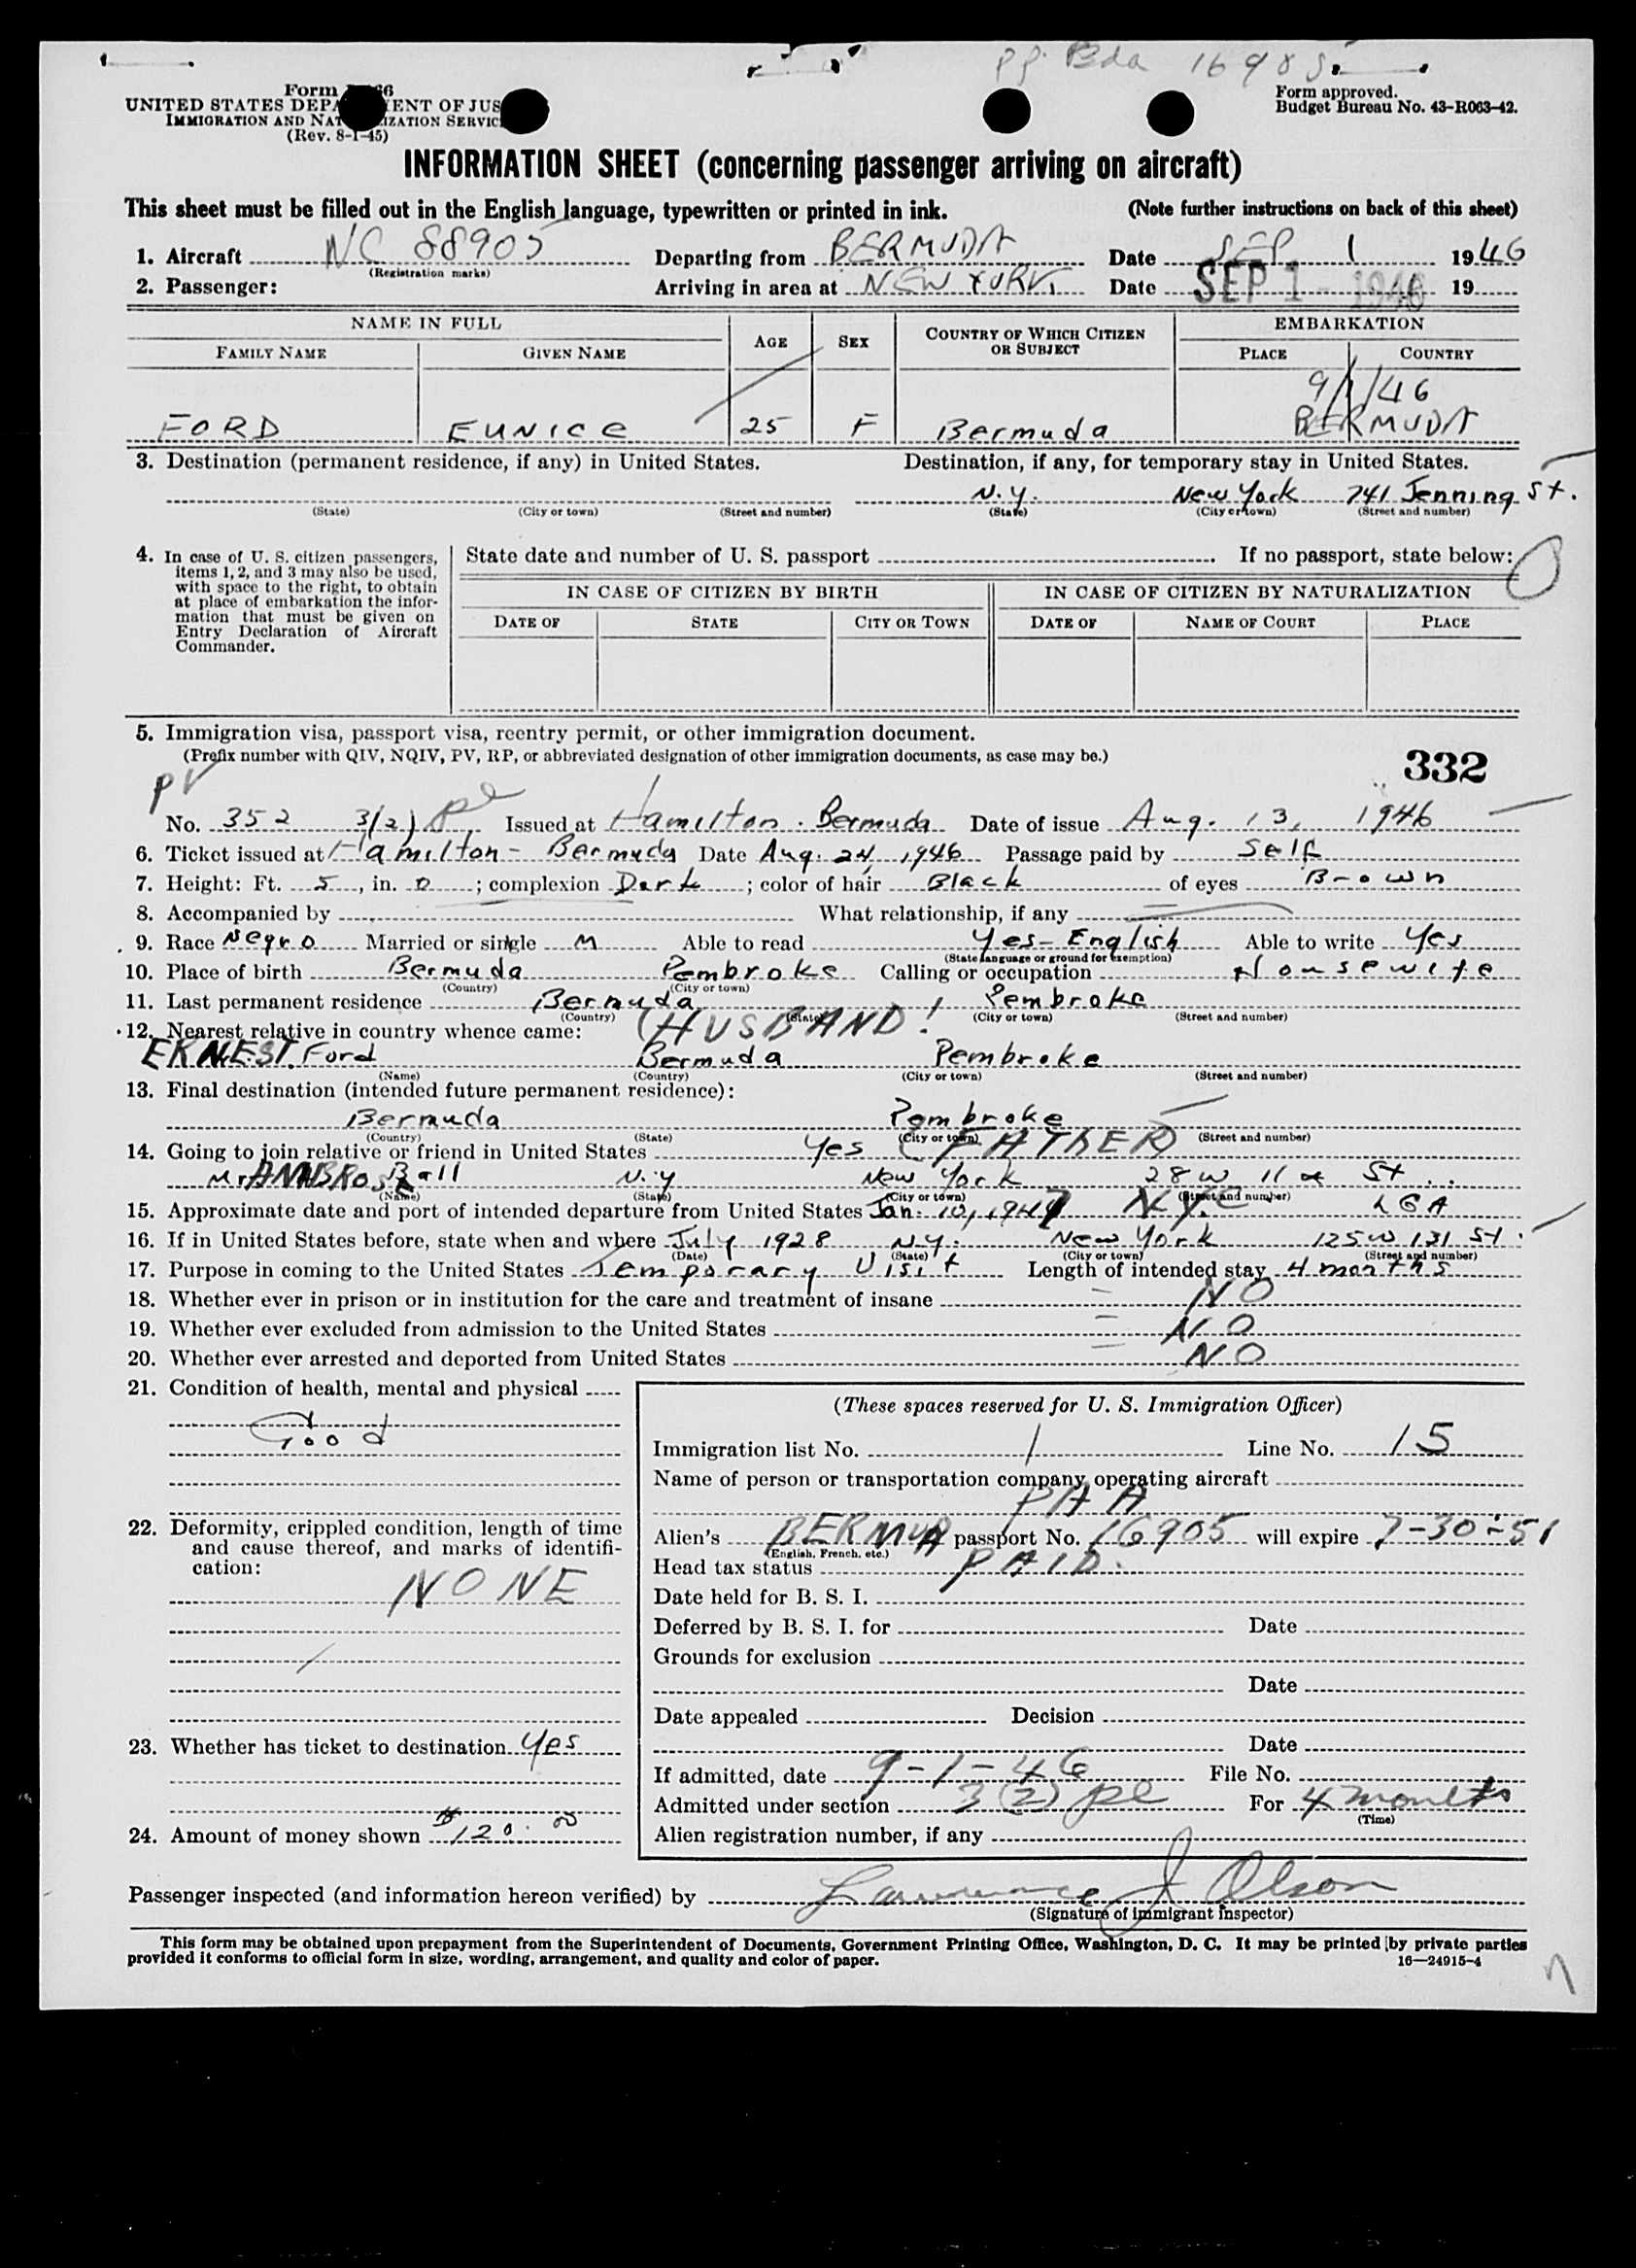 P.P. Bda 16905
Form 66
UNITED STATES DEPA ENT OF JUS
IMMIGRATION AND NAT IZATION SERVIC
(Rev. 8-1-45)
Form approved.
Budget Bureau No. 43-R063-42.
INFORMATION SHEET (concerning passenger arriving on aircraft)
This sheet must be filled out in the English language, typewritten or printed in ink. (Note further instructions on back of this sheet)
1. Aircraft NC 88905 Departing from BERMUDA Date SEP 1 1946
(Registration marks)
2. Passenger: Arriving in area at NEW YORK, Date SEP 1 - 1946 19
NAME IN FULL AGE SEX COUNTRY OF WHICH CITIZEN OR SUBJECT EMBARKATION
FAMILY NAME GIVEN NAME PLACE COUNTRY
9/1/46
FORD EUNICE 25 F Bermuda BERMUDA
3. Destination (permanent residence, if any) in United States. Destination, if any, for temporary stay in United States.
N.Y. New York 741 Jenning St.
(State) (City or town) (Street and number) (State) (City or town) (Street and number)
4. In case of U. S. citizen passengers, items 1, 2, and 3 may also be used, with space to the right, to obtain at place of embarkation the information that must be given on Entry Declaration of Aircraft Commander.
State date and number of U. S. passport If no passport, state below:
IN CASE OF CITIZEN BY BIRTH IN CASE OF CITIZEN BY NATURALIZATION
DATE OF STATE CITY OR TOWN DATE OF NAME OF COURT PLACE
5. Immigration visa, passport visa, reentry permit, or other immigration document.
(Prefix number with QIV, NQIV, PV, RP, or abbreviated designation of other immigration documents, as case may be.)
332
PV
No. 352 3(2) pl Issued at Hamilton. Bermuda Date of issue Aug. 13, 1946
6. Ticket issued at Hamilton - Bermuda Date Aug. 24, 1946 Passage paid by Self
7. Height: Ft. 5, in. 0; complexion Dark; color of hair Black of eyes Brown
8. Accompanied by What relationship, if any
9. Race Negro Married or single M Able to read Yes - English Able to write Yes
(State language or ground for exemption)
10. Place of birth Bermuda Pembroke Calling or occupation Housewife
(Country) (City or town)
11. Last permanent residence Bermuda Pembroke
(Country) (State) (City or town) (Street and number)
12. Nearest relative in country whence came: (HUSBAND!
ERNEST Ford Bermuda Pembroke
(Name) (Country) (City or town) (Street and number)
13. Final destination (intended future permanent residence):
Bermuda Pembroke
(Country) (State) (City or town) (Street and number)
14. Going to join relative or friend in United States Yes (FATHER)
Mr Ball N.Y New York 28 W 11 St.
(Name) (State) (City or town) (Street and number)
15. Approximate date and port of intended departure from United States Jan. 10, 1947 N.Y.C LGA
16. If in United States before, state when and where July 1928 N.Y. New York 125 W 131 St.
(Date) (State) (City or town) (Street and number)
17. Purpose in coming to the United States Temporary Visit Length of intended stay 4 months
18. Whether ever in prison or in institution for the care and treatment of insane NO
19. Whether ever excluded from admission to the United States NO
20. Whether ever arrested and deported from United States NO
21. Condition of health, mental and physical
Good
22. Deformity, crippled condition, length of time and cause thereof, and marks of identification:
NONE
23. Whether has ticket to destination Yes
24. Amount of money shown $120.00
(These spaces reserved for U. S. Immigration Officer)
Immigration list No. 1 Line No. 15
Name of person or transportation company operating aircraft
PAA
Alien's BERMUDA passport No. 16905 will expire 7-30-51
(English, French, etc.)
Head tax status PAID.
Date held for B. S. I.
Deferred by B. S. I. for Date
Grounds for exclusion
Date
Date appealed Decision
Date
If admitted, date 9-1-46 File No.
Admitted under section 3(2) pl For 4 months
(Time)
Alien registration number, if any
Passenger inspected (and information hereon verified) by Lawrence J Olson
(Signature of immigrant inspector)
This form may be obtained upon prepayment from the Superintendent of Documents, Government Printing Office, Washington, D. C. It may be printed by private parties
provided it conforms to official form in size, wording, arrangement, and quality and color of paper. 16—24915-4